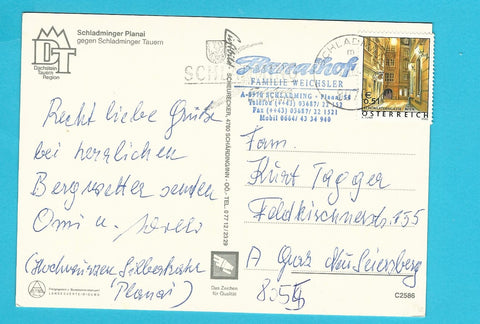 Schladminger Planai
gegen Schladminger Tauern
DT
Dachstein
Tauern
Region
Recht liebe Grüße
bei herzlichen
Bergwetter senden
Omi u.
Planai)
Das Zeichen
für Qualität
SCHURRICHER, 4780 SCHÄRDING/INN - OÖ. - TEL. 0 77 12/23 29
SCHLADMING
FAMILIE WEICHSLER
A-8970 SCHLADMING - Planai 56
Telefon (++43) 03687/22 152
Fax (++43) 03687/22 1521
Mobil 0664/43 34 940
€
0,51
ÖSTERREICH
Fam.
Kurt Tagger
Feldkirchnerstr. 155
A Graz Neu Seiersberg
C2586